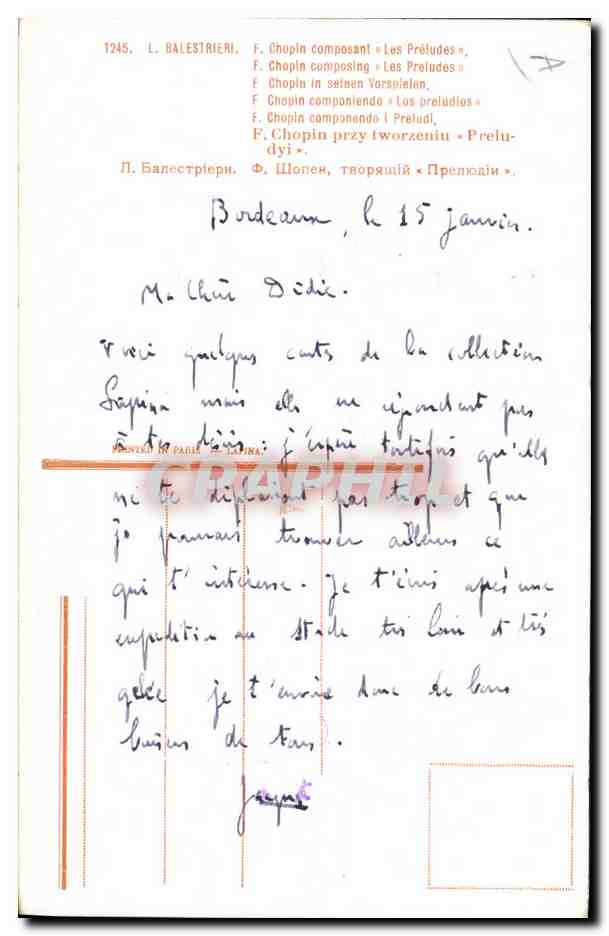 1245. L. BALESTRIERI. F. Chopin composant « Les Préludes »,
F. Chopin composing « Les Preludes »
F Chopin in seinen Vorspielen,
F Chopin componiendo « Los preludios »
F. Chopin componendo i Preludi,
F. Chopin przy tworzeniu « Prelu-
dyi ».
Л. Балестріери. Ф. Шопен, творящій « Прелюдіи ».
Bordeaux, le 15 janvier.
Ma Chère Dédée.
Voici quelques cartes de la collection
Lapina mais elles ne répondent pas
à tes désirs : j'espère toutefois qu'elles
PRINTED IN PARIS — LAPINA.
GRAPHIT
ne te déplairont pas trop et que
je pourrais trouver ailleurs ce
qui t'intéresse. Je t'écris après une
expédition au stade très loin et très
gelée je t'envoie donc de bons
baisers de tous.